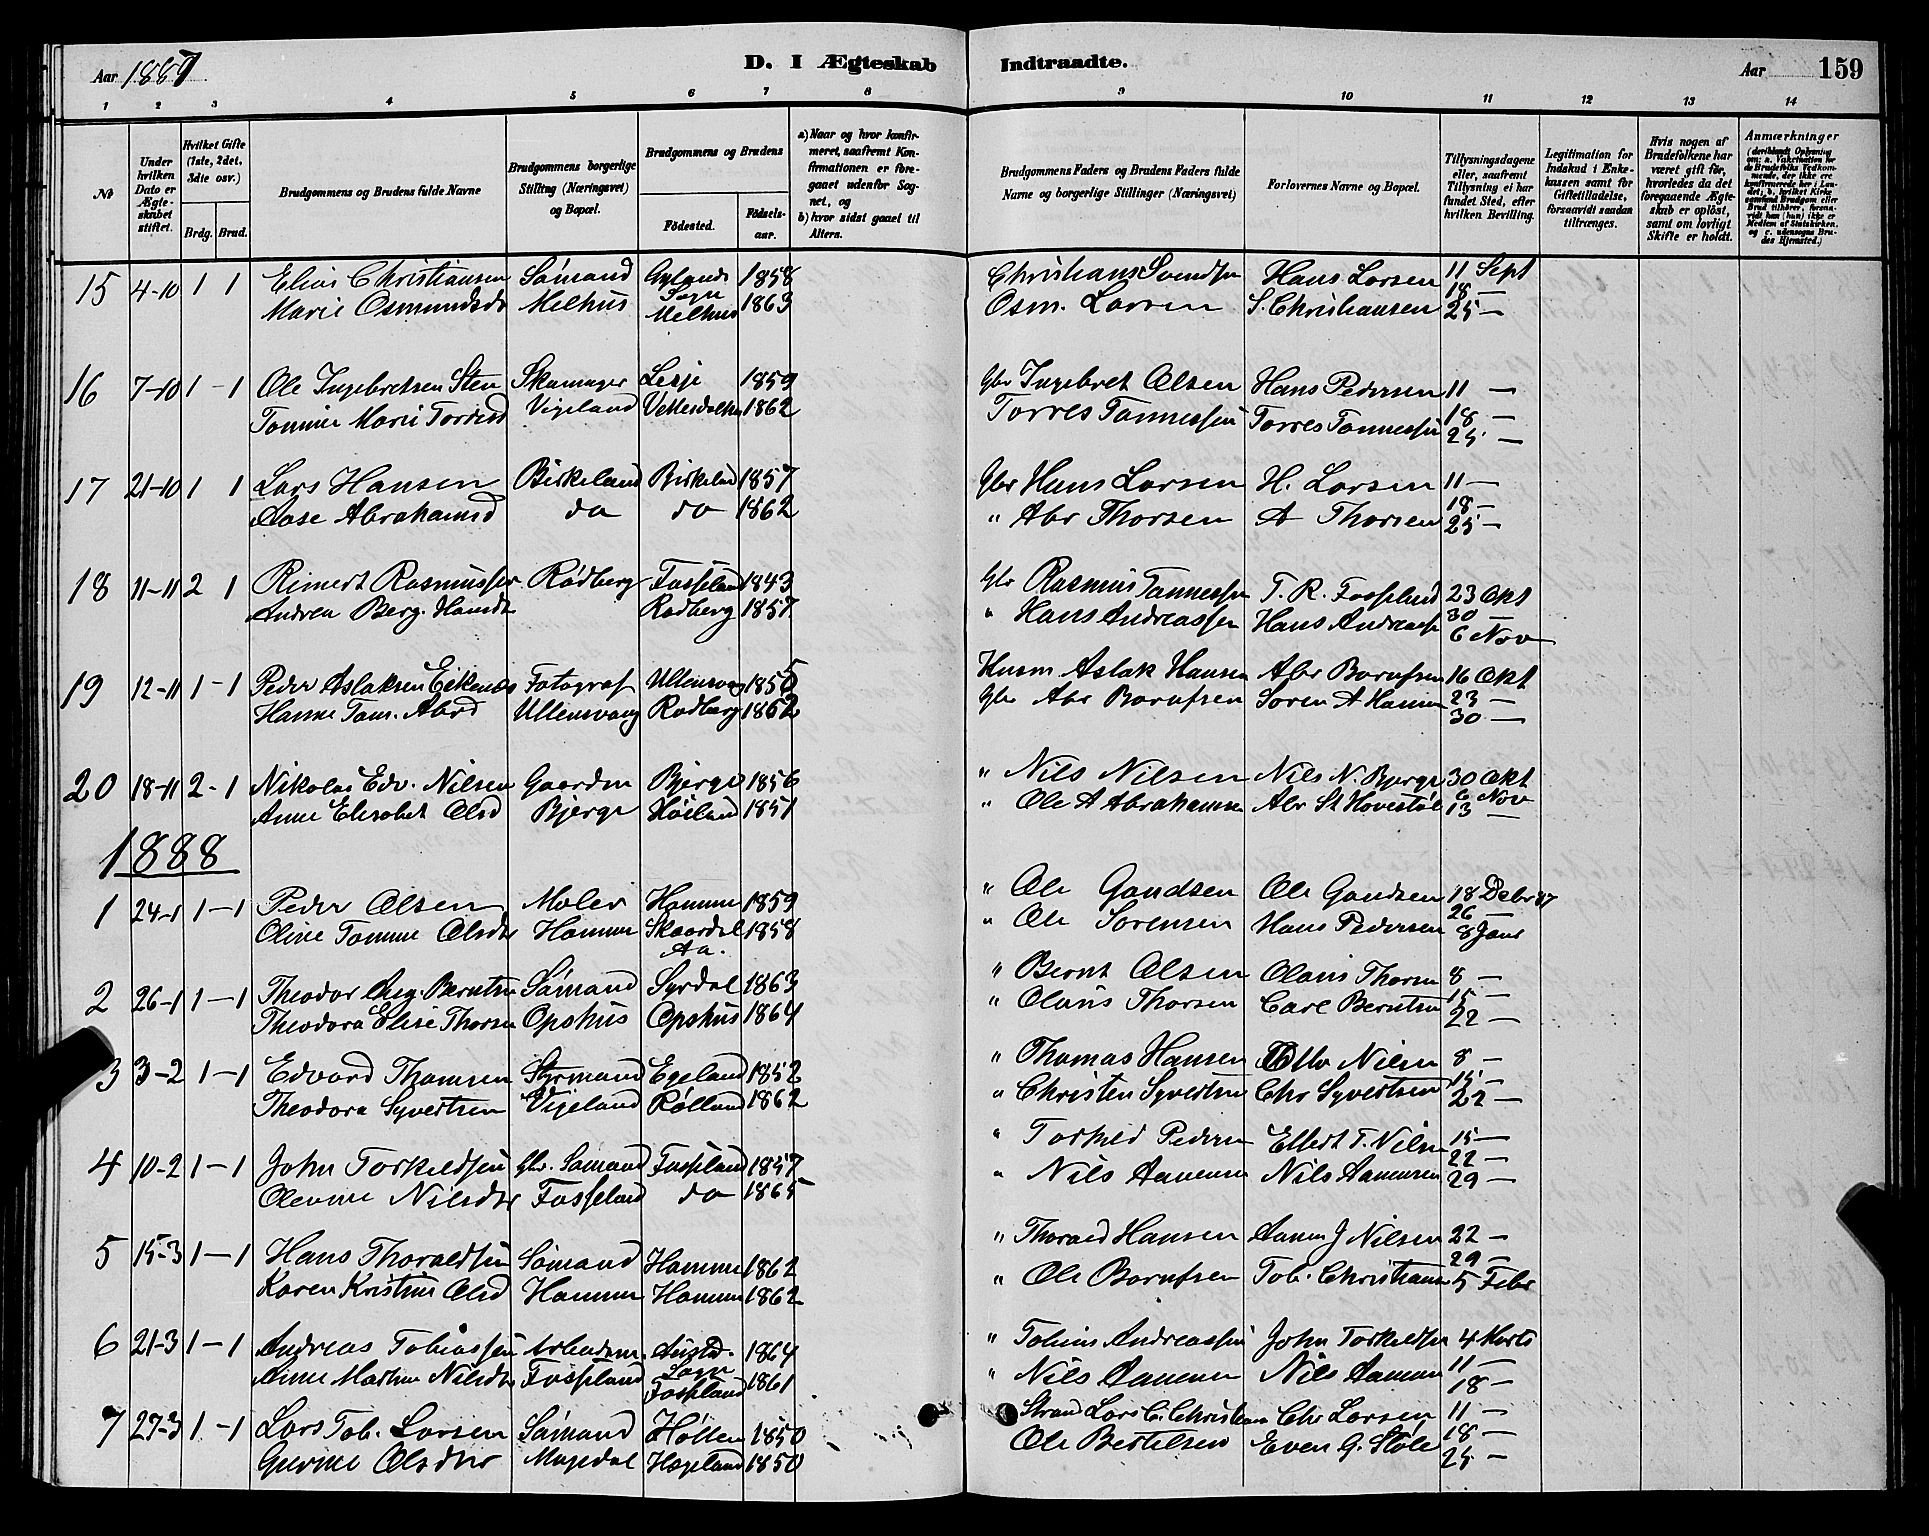 Aar 1887.
D. I Ægteskab
Indtraadte.
Aar
159
1 2 3 4 5 6 7 8 9 10 11 12 13 14
№
Under hvilken Dato er Ægteskabet stiftet.
Hvilket Gifte (1ste, 2det, 3die osv.)
Brdg. Brud.
Brudgommens og Brudens fulde Navne
Brudgommens borgerlige Stilling (Næringsvei) og Bopæl.
Brudgommens og Brudens
Fødested.
Fødselsaar.
a) Naar og hvor konfirmeret, saafremt Konfirmationen er foregaaet udenfor Sognet, og
b) hvor sidst gaaet til Alters.
Brudgommens Faders og Brudens Faders fulde Navne og borgerlige Stillinger (Næringsvei)
Forlovernes Navne og Bopæl.
Tillysningsdagene eller, saafremt Tillysning ei har fundet Sted, efter hvilken Bevilling.
Legitimation for Indskud i Enkekassen samt for Giftetilladelse, forsaavidt saadan tiltrænges.
Hvis nogen af Brudefolkene har været gift før, hvorledes da det foregaaende Ægteskab er opløst, samt om lovligt Skifte er holdt.
Anmærkninger
15 4-10 1 1 Elias Christiansen Sømand Gylands Sogn 1858 Christians Svendsen Hans Larsen 11 Sept
Marie Osmundsdr Melhus Melhus 1863 Osm. Larsen S. Christiansen 18 —
25 —
16 7-10 1 - 1 Ole Ingebretsen Sten Skomager Lesje 1859 Gbr Ingebret Olsen Hans Pedersen 11 —
Tomine Marie Torresd Vigeland 1862 Torres Tønnessen Torres Tønnessen 18 —
25 —
17 21-10 1 1 Lars Hansen Birkeland Birkeland 1857 Gbr Hans Larsen H. Larsen 11 —
Aase Abrahamsd do do 1862 " Abr Thorsen A Thorsen 18 —
25 —
18 11-11 2 1 Reinert Rasmussen Rødberg Fosseland 1843 Gbr Rasmus Tønnessen T. R. Fosseland 23 Okt
Andrea Berg. Hansdr Rødberg 1857 " Hans Andreassen Hans Andreass 30
6 Nov
19 12-11 1 - 1 Peder Aslaksen Eikenes Fotograf Ullensvang 1855 Husm Aslak Hansen Abr Borufsen 16 Okt
Hanne Tom. Abrd Ullensvang Rødberg 1862 Gbr Abr Borufsen Søren A Hamm 23 —
30 —
20 18-11 2 - 1 Nikolai Edv. Nilsen Gaardm Bjerge 1856 " Nils Nilsen Nils N. Bjerge 30 Okt
Anne Elisabet Olsd Bjerge Høiland 1851 " Ole A Abrahamsen Abr St Hovestøl 6 Nov
13 —
1888
1 24-1 1 - 1 Peder Olsen Maler Hamme 1859 " Ole Gundsen Ole Gundsen 18 Debr 87
Oline Tomine Olsdr Hamme Skaardal Aa. 1858 " Ole Sørensen Hans Pedersen 26 —
8 Janr
2 26-1 1 - 1 Theodor Aug. Berntsen Sømand Syrdal 1863 " Bernt Olsen Olaus Thorsen 8 —
Theodora Elise Thorsen Opshus Opshus 1864 " Olaus Thorsen Carl Berntsen 15 —
22 —
3 3-2 1 - 1 Edvard Thomsen Styrmand Egeland 1852 " Thomas Hansen Nilsen 8 —
Theodora Syvertsen Vigeland Rølland 1862 " Christen Syvertsen Chr Syvertsen 15 —
22 —
4 10-2 1 - 1 John Torkeldsen Gbr. Sømand Fosseland 1857 " Torkeld Pedersen Elbert T. Nilsen 15 —
Olevine Nilsdtr Fosseland do 1865 " Nils Aanensen Nils Aanensen 22 —
29 —
5 15-3 1 - 1 Hans Thoraldsen Sømand Hamme 1862 " Thorald Hansen Aanen J Nilsen 22 —
Karen Kristine Olsd Hamme Hamme 1862 " Ole Borufsen Tob. Christiansen 29 —
5 Febr
6 21-3 1 - 1 Andreas Tobiassen Arbeidsm. Austad Sogn 1864 " Tobias Andreassen John Torkeldsen 4 Marts
Anne Martine Nilsdtr Fosseland Fosseland 1861 " Nils Aanensen Nils Aanensen 11 —
18 —
7 27-3 1 - 1 Lars Tob. Larsen Sømand Høllen 1850 Strand Lars C. Christiansen Chr Larsen 11 —
Gurine Olsdtr Mosedal Hægeland 1850 Ole Bertelsen Even G. Støle 18 —
25 —